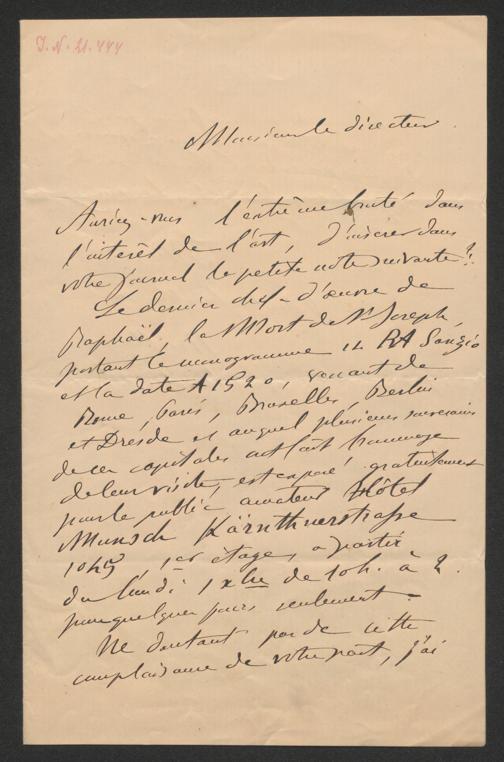 J. N. 21.444
Monsieur le directeur.
Auriez-vous l'extrême bonté dans
l'intérêt de l'art, d'insérer dans
votre journal la petite note suivante?:
Le dernier chef-d'œuvre de
Raphaël, la Mort de St Joseph,
portant le monogramme RA Sanzio
et la date A1520, venant de
Rome, Paris, Bruxelles, Berlin
et Dresde et auquel plusieurs souverains
de ces capitales ont fait hommage
de leur visite, est exposé gratuitement
pour le public amateur Hôtel
Munsch Kärnthnerstrasse
1er étage, à partir
du lundi de 10h. à 2.
pour quelques jours seulement.
Ne doutant pas de cette
complaisance de votre part, j'ai